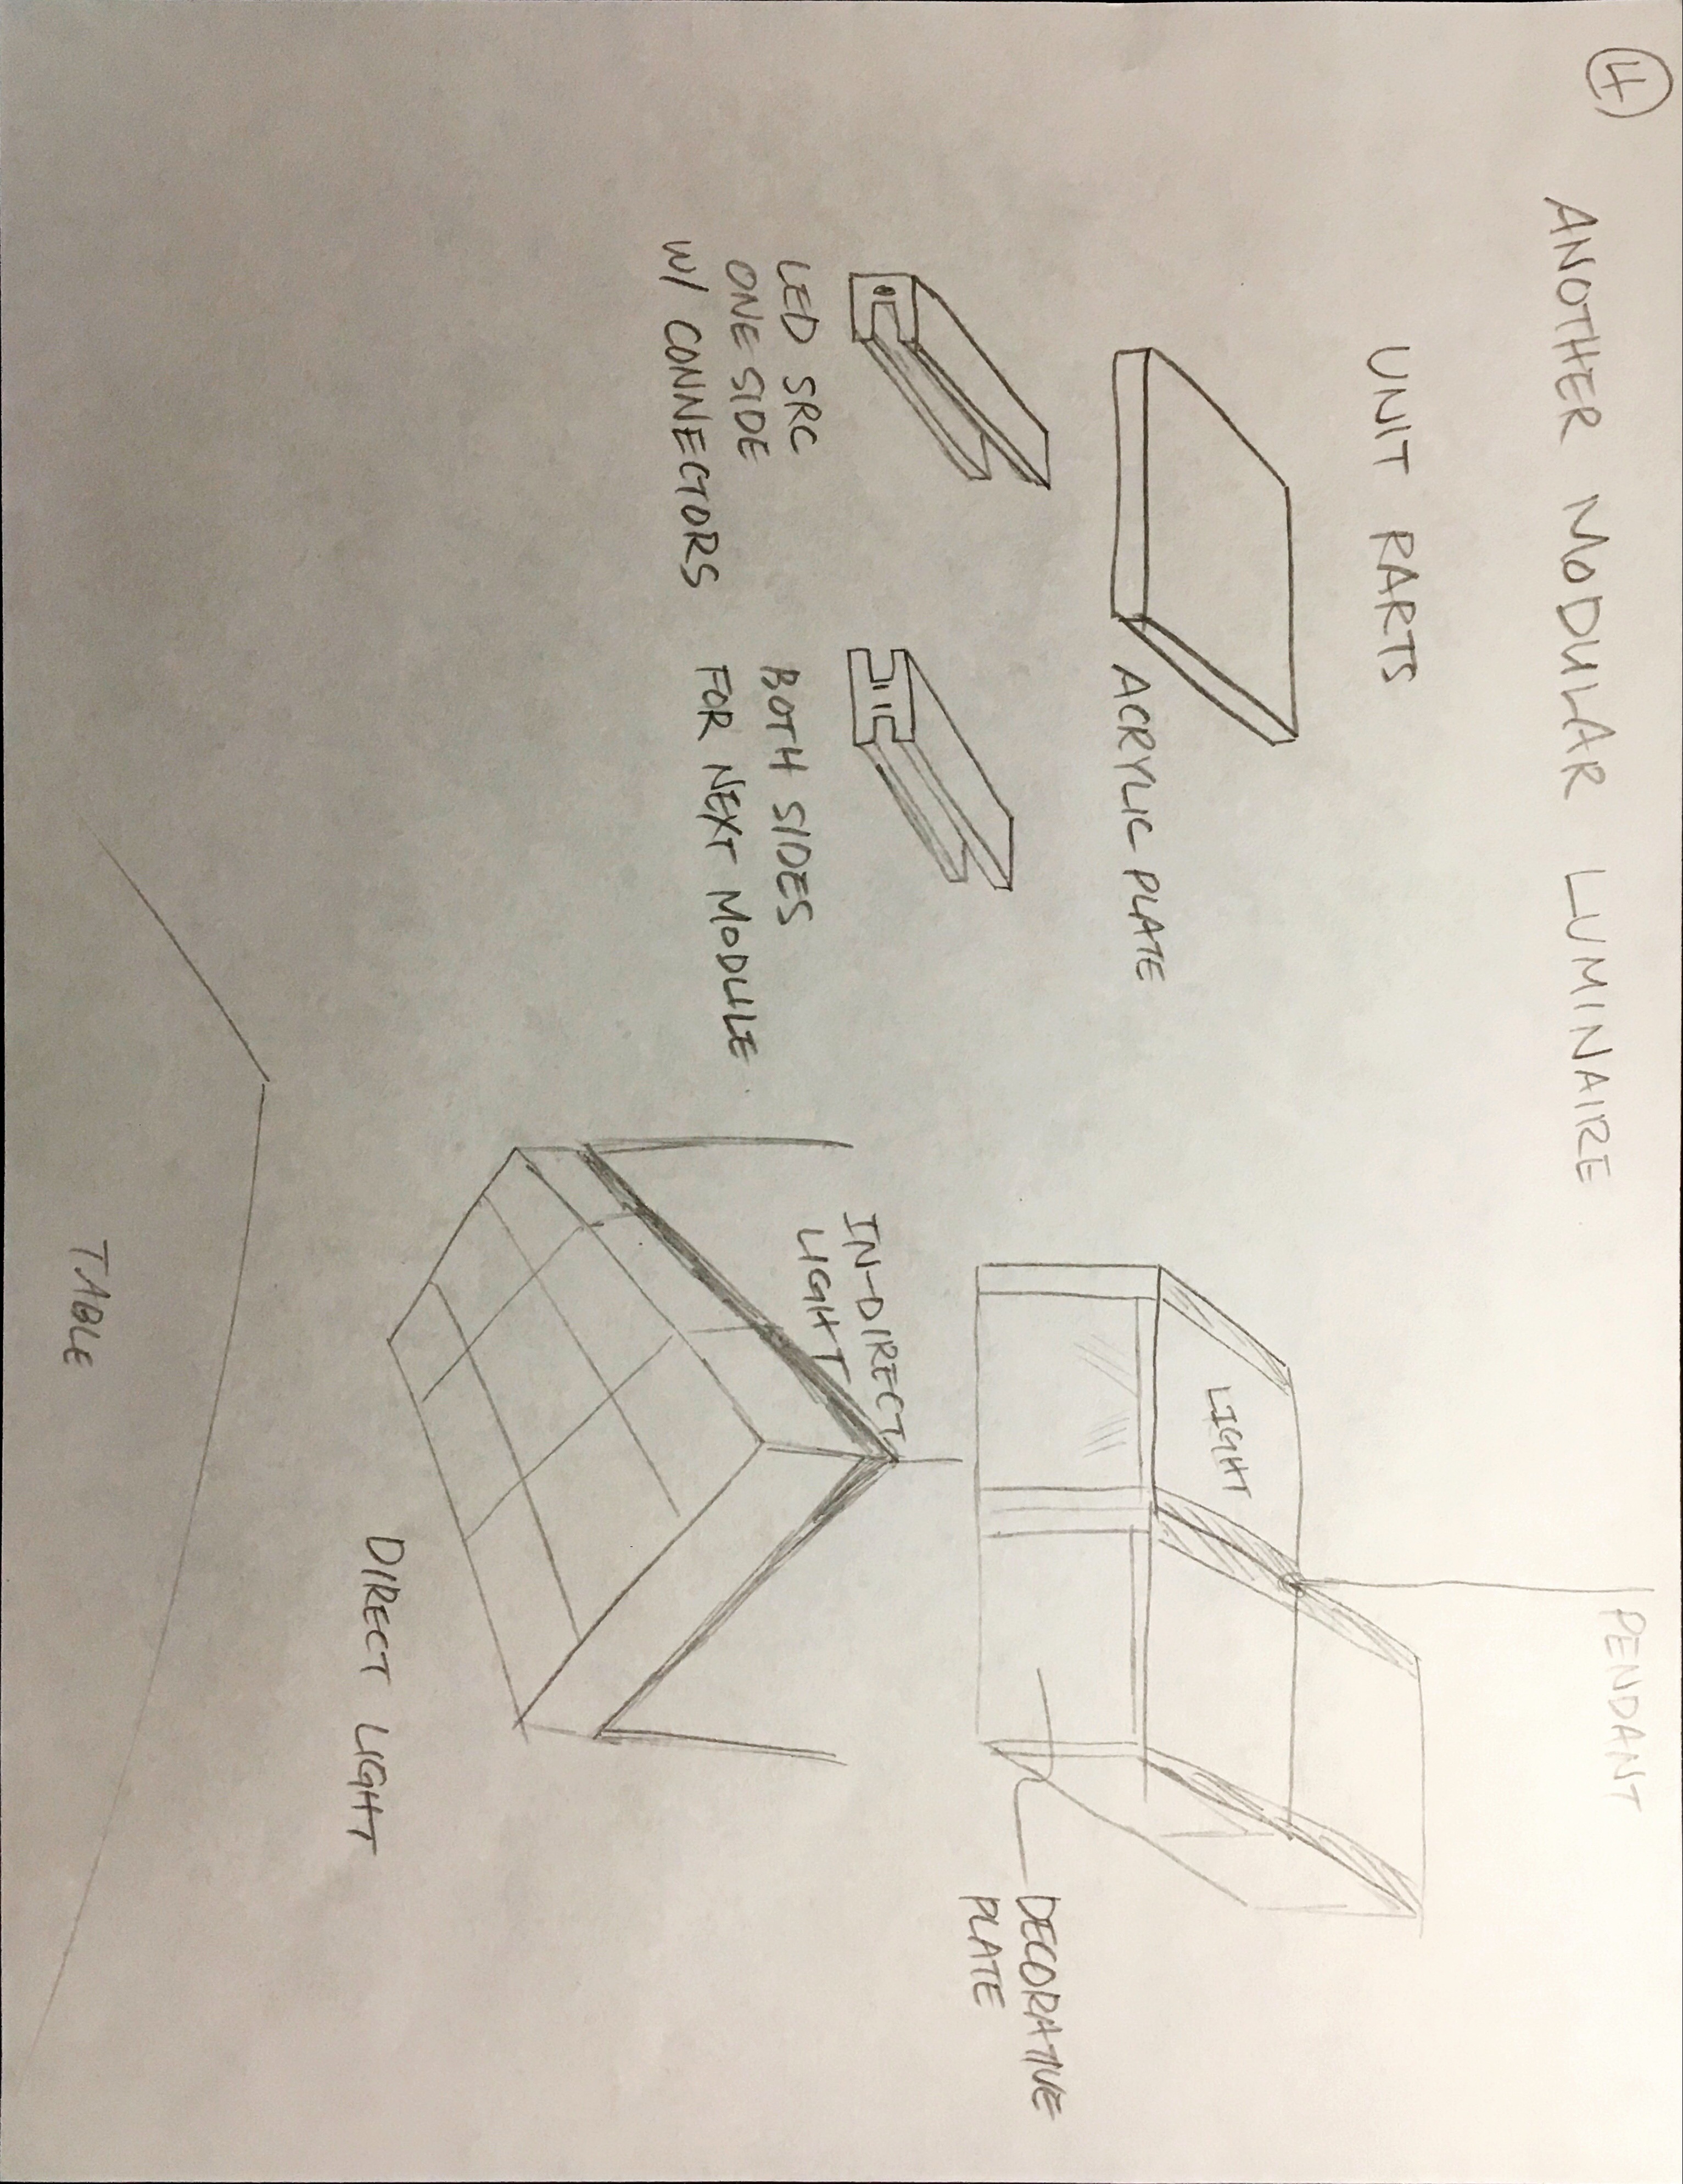 4
ANOTHER MODULAR LUMINAIRE
UNIT PARTS
ACRYLIC PLATE
LED SRC
ONE SIDE
W/ CONNECTORS
BOTH SIDES
FOR NEXT MODULE
PENDANT
LIGHT
DECORATIVE
PLATE
IN-DIRECT
LIGHT
DIRECT LIGHT
TABLE